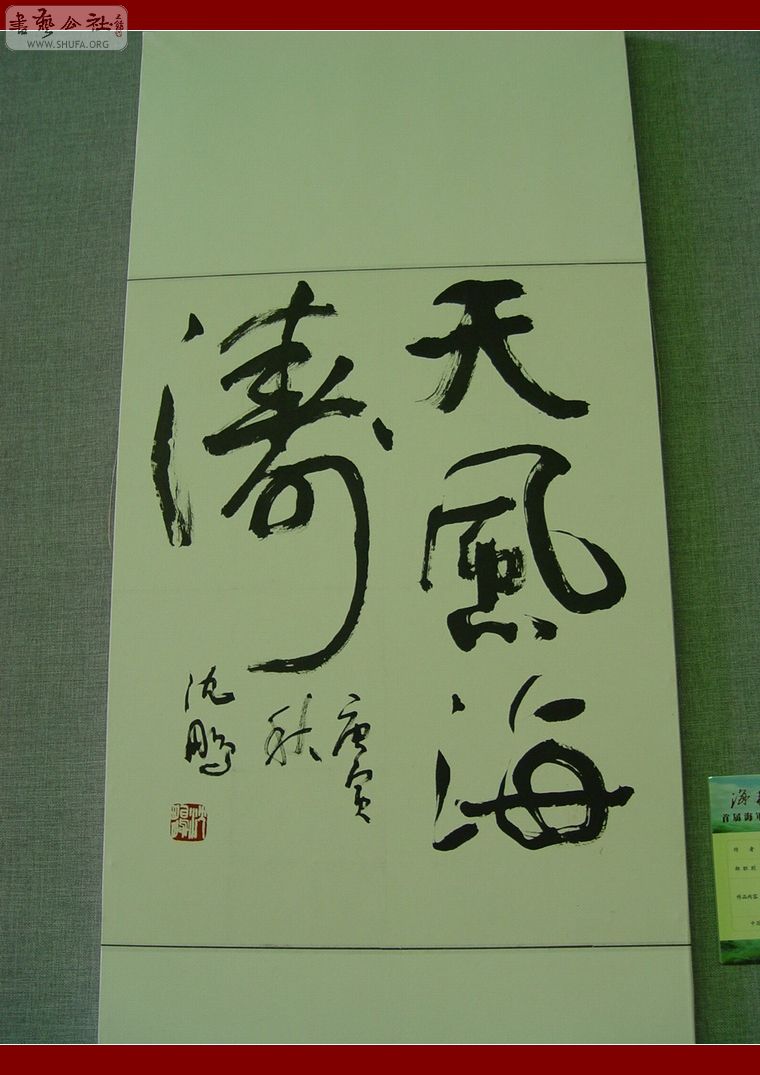 書藝公社
WWW.SHUFA.ORG
天風海
濤
庚寅
秋
沈鹏
沈鹏
海
首届海军
作者
作品内容